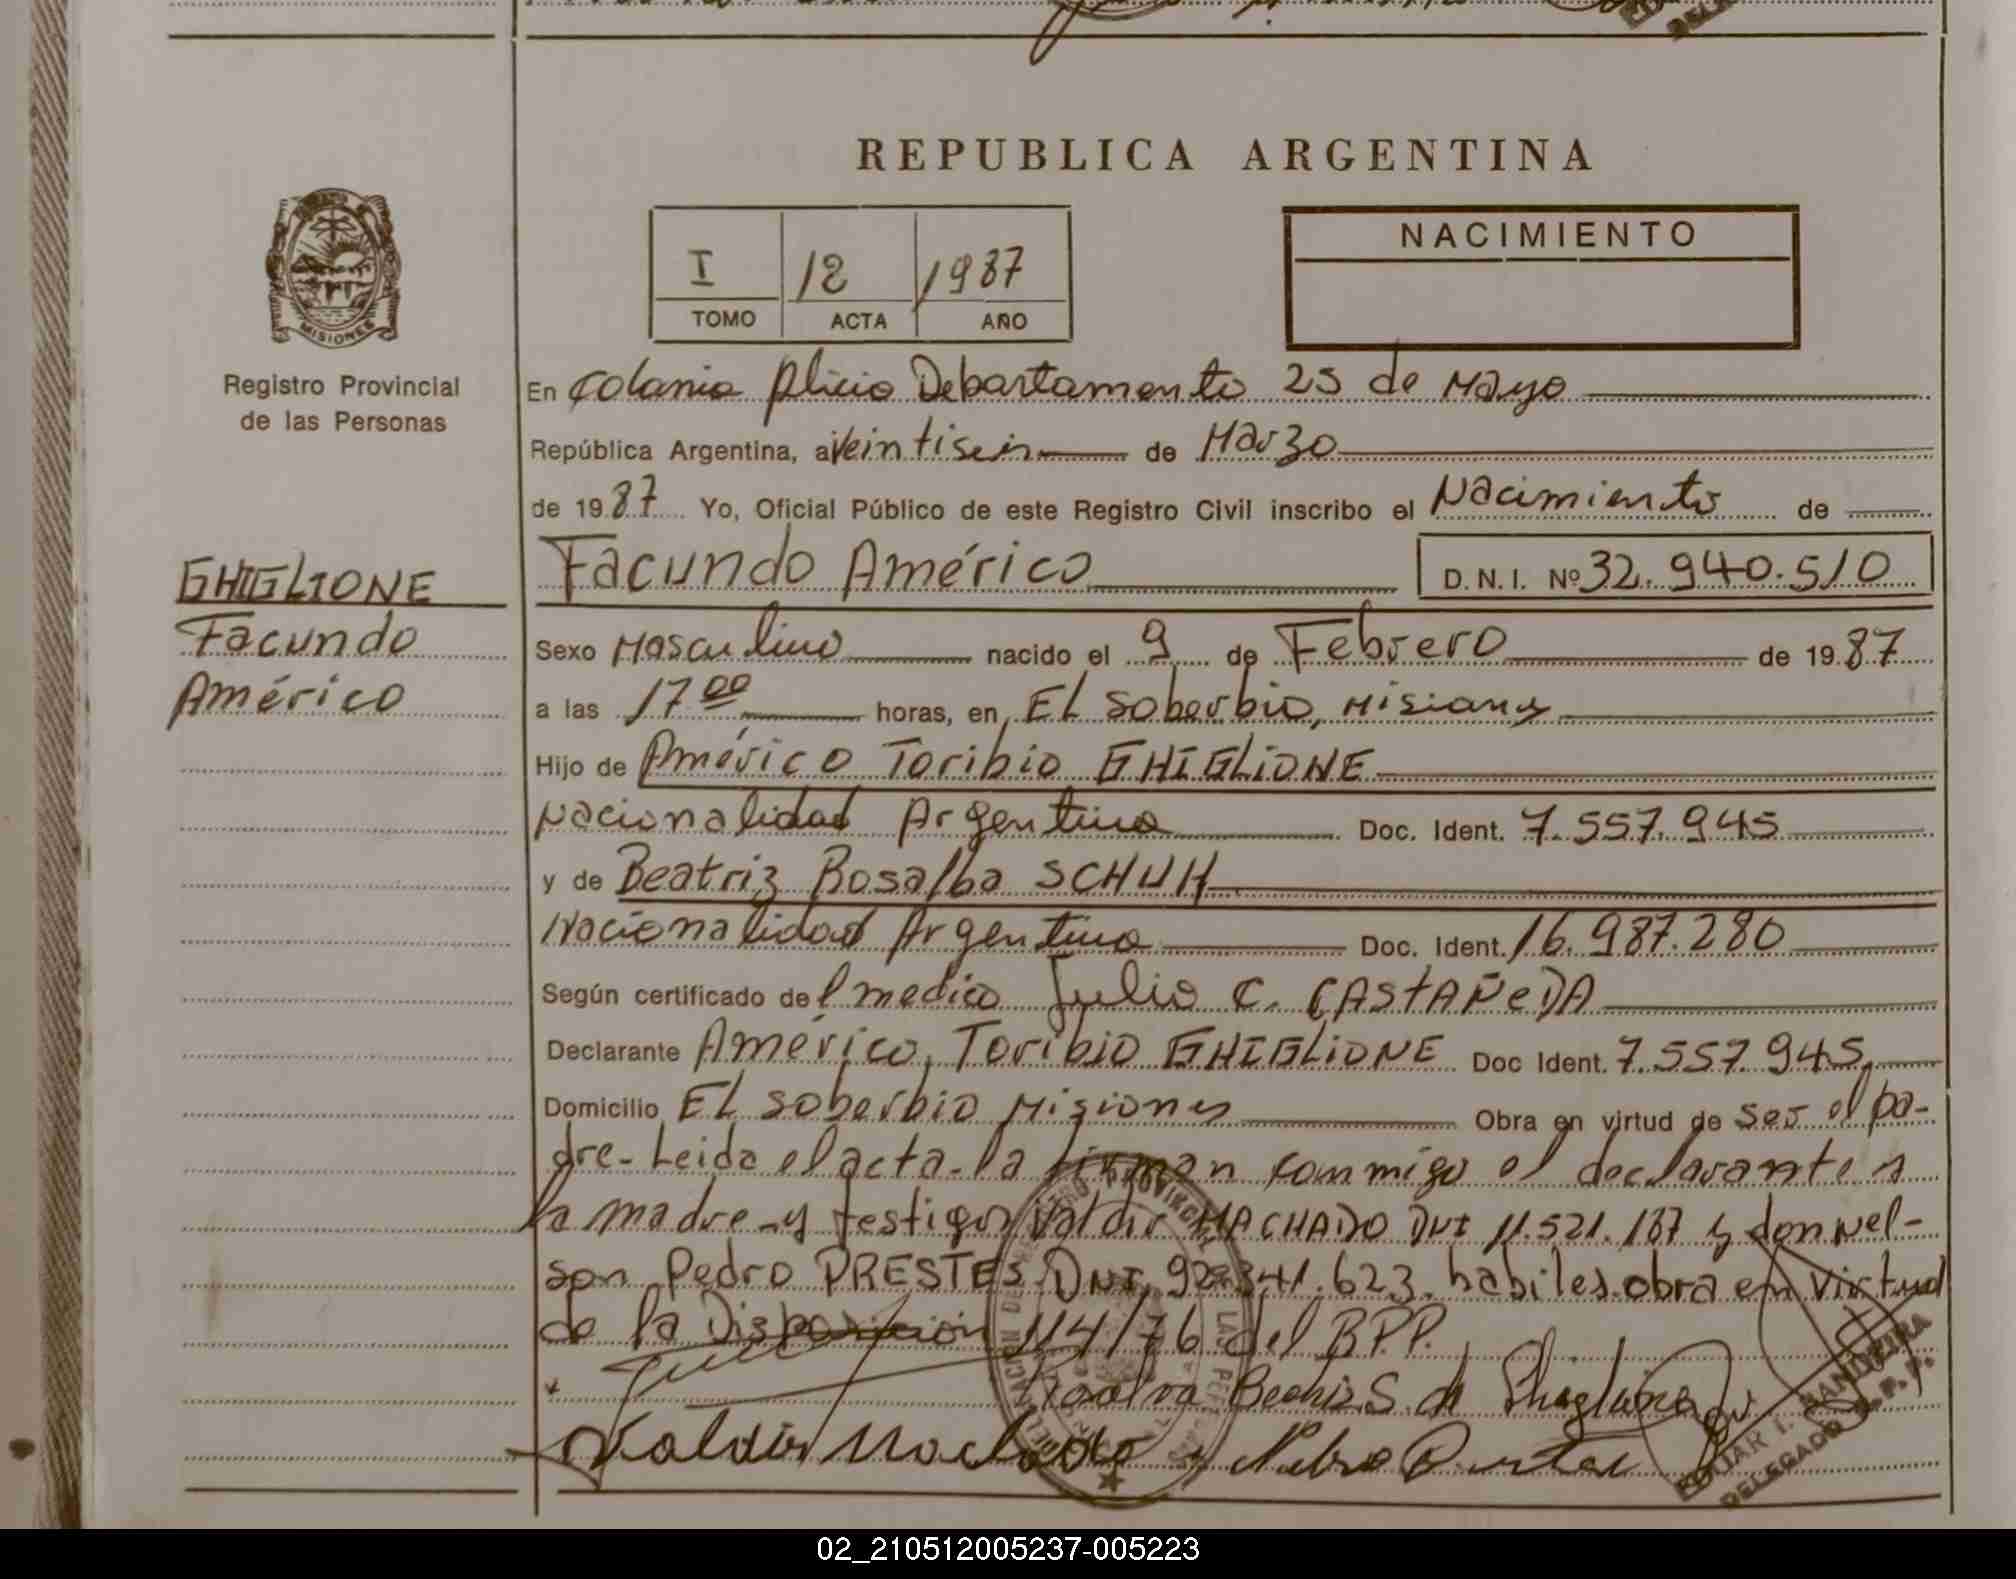 REPUBLICA ARGENTINA
MISIONES
Registro Provincial
de las Personas
I 12 1987
TOMO ACTA AÑO
NACIMIENTO
En Colonia Alicia Departamento 25 de Mayo
República Argentina, a Veintiseis de Marzo
de 1987 Yo, Oficial Público de este Registro Civil inscribo el Nacimiento de
GHIGLIONE
Facundo
Américo
Facundo Américo D.N.I. Nº 32.940.510
Sexo Masculino nacido el 9 de Febrero de 1987
a las 17 00 horas, en El Soberbio, Misiones
Hijo de Américo Toribio GHIGLIONE
Nacionalidad Argentina Doc. Ident. 7.557.945
y de Beatriz Rosalba SCHUH
Nacionalidad Argentina Doc. Ident. 16.987.280
Según certificado del medico Julio C. CASTAÑEDA
Declarante Américo Toribio GHIGLIONE Doc Ident. 7.557.945
Domicilio El Soberbio Misiones Obra en virtud de ser el pa-
dre- Leida el acta- la firman conmigo el declarante
la madre-y testigos Valdir MACHADO DNI 11.521.187 y don Nel-
son Pedro PRESTES DNI 92.341.623 habiles.obra en virtud
de la Disposicion 114/76 del R.P.P.
Valdir Machado
DELEGADO R.P.P.
02_210512005237-005223